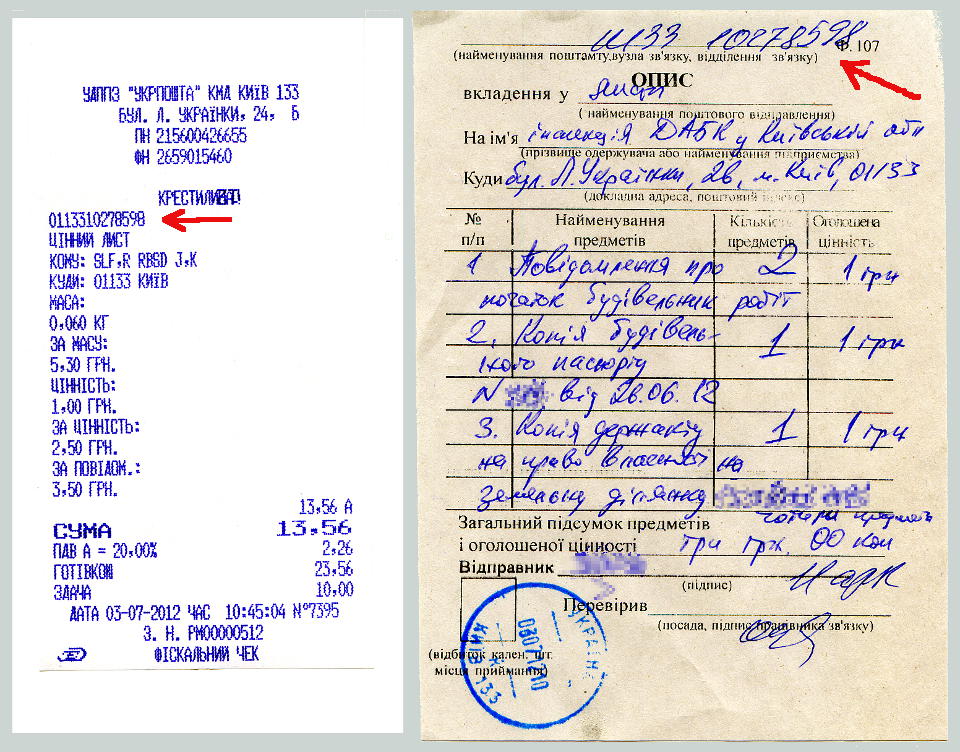 УДППЗ "УКРПОШТА" КМД КИЇВ 133
БУЛ. Л. УКРАЇНКИ, 24, Б
ПН 215600426655
ФН 2659015460
0113310278598
ЦІННИЙ ЛИСТ
КОМУ: SLF,R RBSD J,K
КУДИ: 01133 КИЇВ
МАСА:
0,060 КГ
ЗА МАСУ:
5,30 ГРН.
ЦІННІСТЬ:
1,00 ГРН.
ЗА ЦІННІСТЬ:
2,50 ГРН.
ЗА ПОВІДОМ.:
3,50 ГРН.
13,56 А
СУМА 13,56
ПДВ А = 20,00% 2,26
ГОТІВКОЮ 23,56
ЗДАЧА 10,00
ДАТА 03-07-2012 ЧАС 10:45:04 №7395
З. Н. РМ00000512
ФІСКАЛЬНИЙ ЧЕК
133 10278598 Ф. 107
(найменування поштамту,вузла зв'язку, відділення зв'язку)
ОПИС
вкладення у
( найменування поштового відправлення)
На ім'я інспекція ДАБК у Київській обл
(прізвище одержувача або найменування підприємства)
Куди бул. Л.Українки, 26, м. Київ, 01133
(докладна адреса, поштовий індекс)
№ п/п Найменування предметів Кількість предметів Оголошена цінність
1 Повідомлення про 2 1 грн
початок будівельних робіт
2. Копія будівель- 1 1 грн
ного паспорту
N від 26.06.12
3. Копія держакту 1 1 грн
на право власності на
земельну ділянку
Загальний підсумок предметів чотири предмети
і оголошеної цінності три грн. 00 коп
Відправник
(підпис)
Перевірив
(посада, підпис працівника зв'язку)
(відбиток кален. шт.
місця приймання)
УКРАЇНА
КИЇВ 133